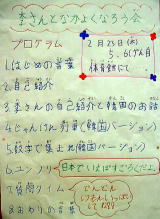 李さんとなかよくなろう会
プログラム
2月23日(水)
5、6(げん)目
体育館にて
1.はじめの言葉
2.自己紹介
3.李さんの自己紹介と韓国のお話
4.じゃんけん列車(韓国バージョン)
5.数字で集まれ(韓国バージョン)
6.ユンノリ
日本でいえばすごろくだよ。
7.質問タイム
どんどん
しつもんしてね
8.おわりの言葉